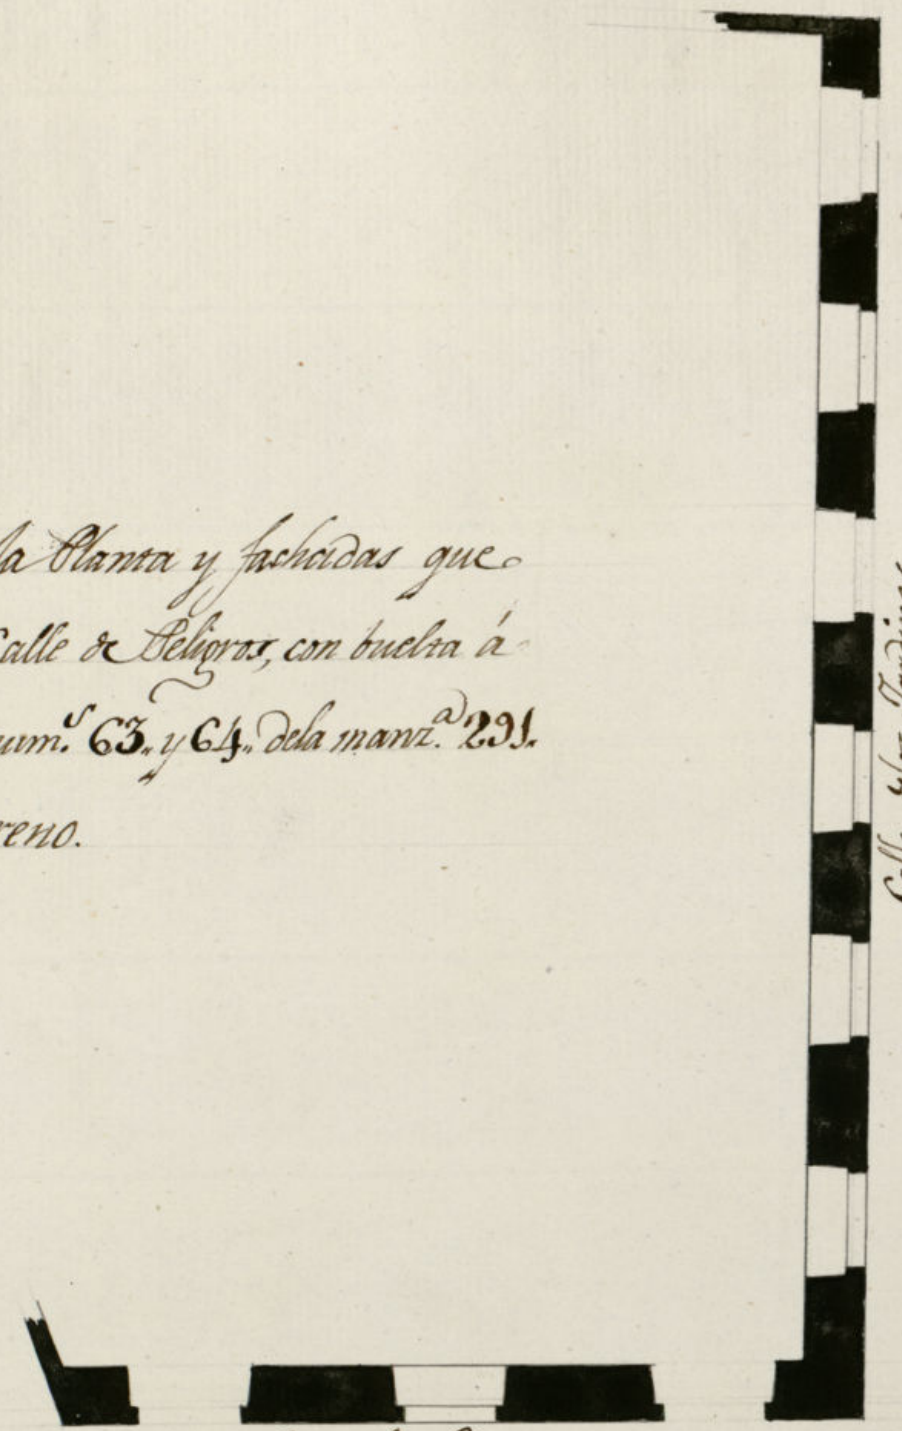 la Planta y fachadas que
Calle de Peligros, con buelta á
num.ˢ 63. y 64. dela manz.ª 291.
reno.
Calle Jardines